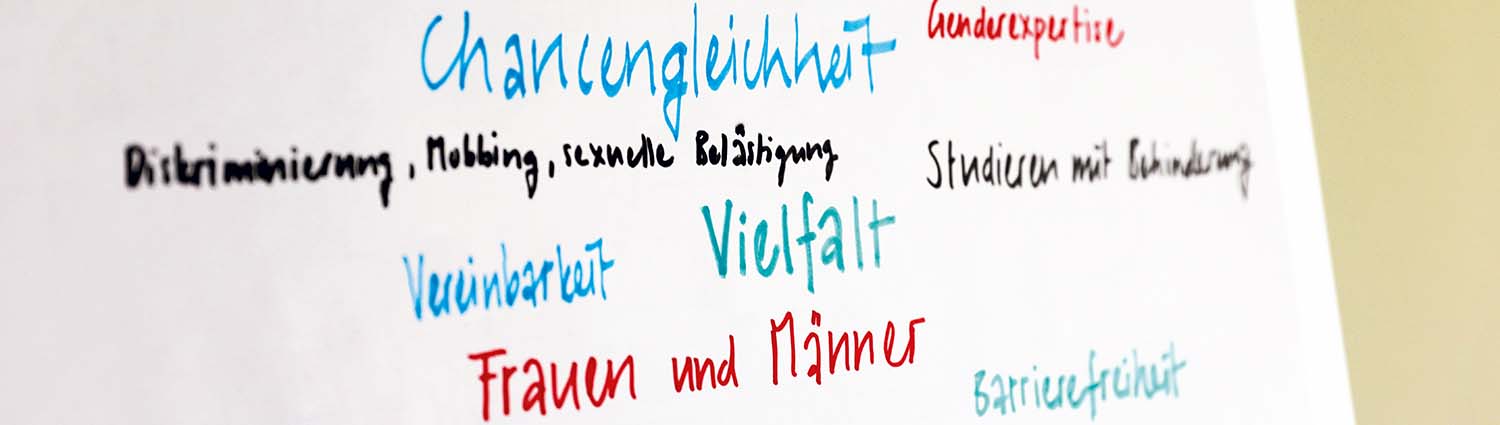 Chancengleichheit
Genderexpertise
Diskriminierung, Mobbing, sexuelle Belästigung
Studieren mit Behinderung
Vielfalt
Vereinbarkeit
Frauen und Männer
Barrierefreiheit